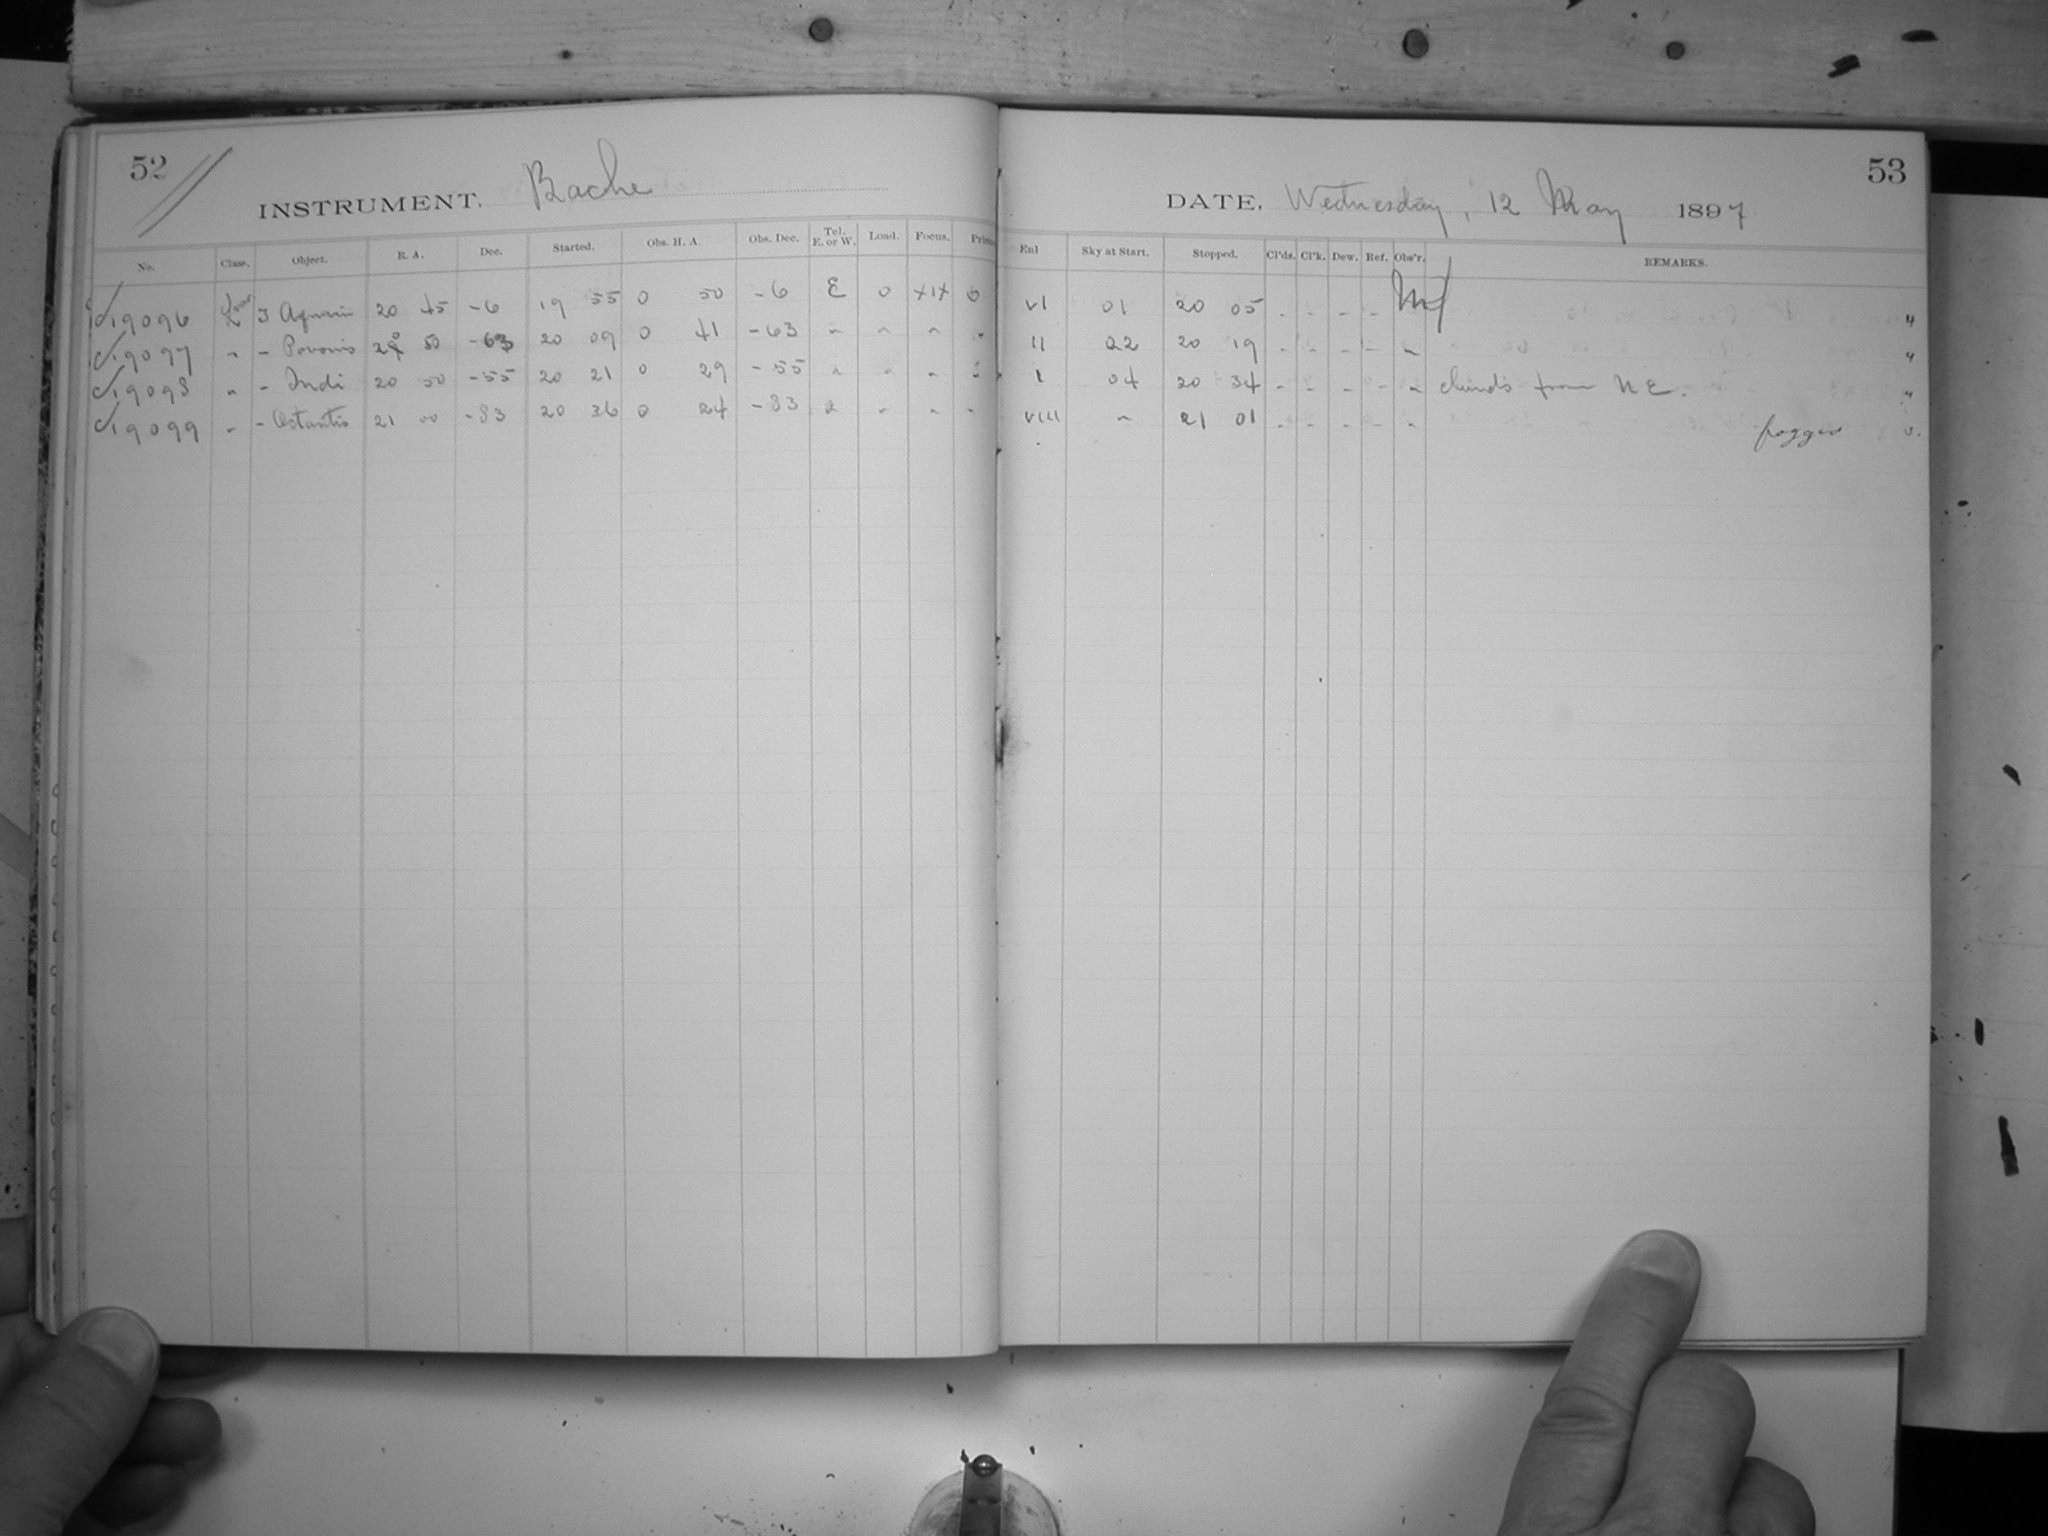 52
INSTRUMENT. Bache
No. Class. Object. R. A. Dec. Started. Obs. H. A. Obs. Dec. Tel. E. or W. Load. Focus.
19096 T 20 45 -6 19 55 0 50 -6 E 0
19097 " - Pavonis 50 -63 20 09 0 41 -63 " " "
19098 " - Indi 20 50 -55 20 21 0 29 -55 " " "
19099 " - Octantis 21 00 -83 20 36 0 24 -83 " " "
53
DATE, Wednesday, 12 May 1897
Enl Sky at Start. Stopped. Cl'ds. Cl'k. Dew. Ref. Obs'r. REMARKS.
VI 01 20 05 - - - -
II 22 20 19 - - - - "
I 04 20 34 - - - - " clouds from N E.
VIII " 21 01 - - - - "